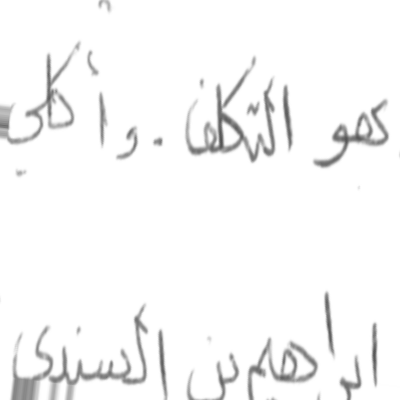 هو التكلف . و أ كلي
ابراهيم بن السندى